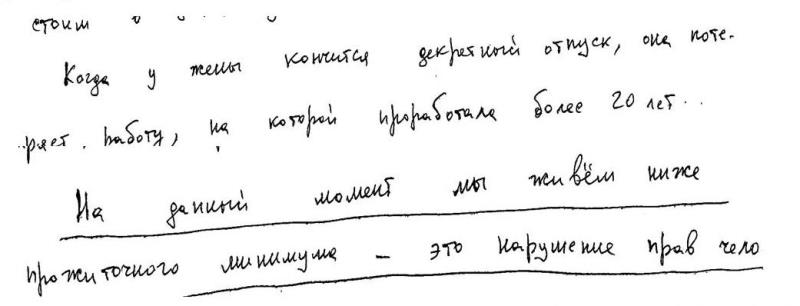 стоим в
Когда у жены кончится декретный отпуск, она поте-
ряет работу, на которой проработала более 20 лет..
На данный момент мы живём ниже
прожиточного минимума – это нарушение прав чело